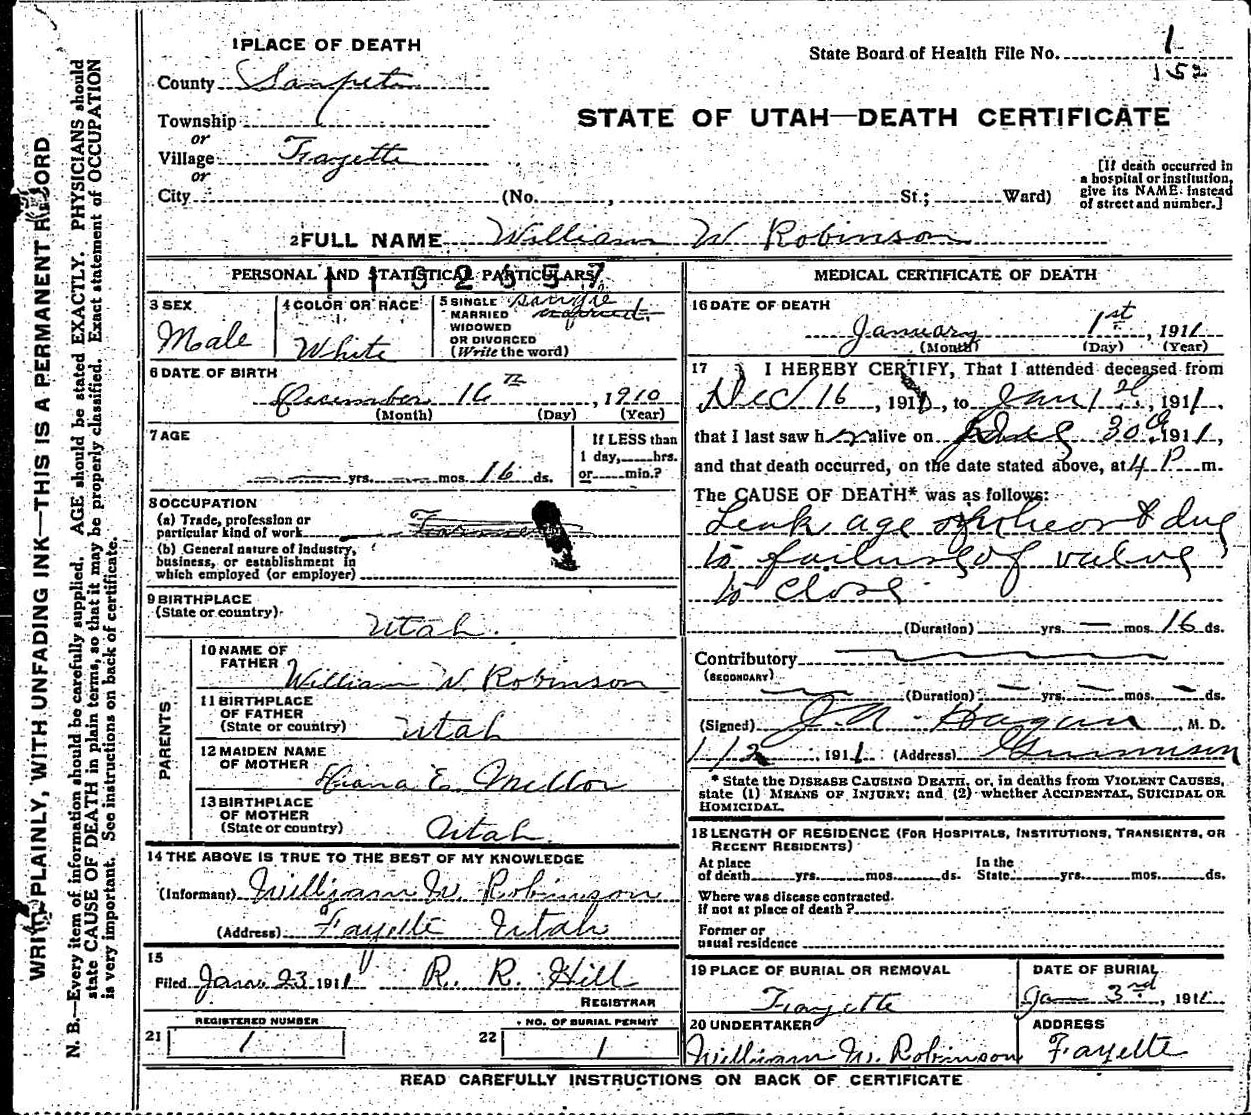 WRITE PLAINLY, WITH UNFADING INK—THIS IS A PERMANENT RECORD
N. B.—Every item of information should be carefully supplied. AGE should be stated EXACTLY. PHYSICIANS should
state CAUSE OF DEATH in plain terms, so that it may be properly classified. Exact statement of OCCUPATION
is very important. See instructions on back of certificate.
1 PLACE OF DEATH
County Sanpete
Township
or
Village Fayette
or
City (No. , St.; Ward)
State Board of Health File No. 1
152
STATE OF UTAH—DEATH CERTIFICATE
[If death occurred in
a hospital or institution,
give its NAME instead
of street and number.]
2 FULL NAME William W Robinson
PERSONAL AND STATISTICAL PARTICULARS
3 SEX
Male
4 COLOR OR RACE
White
5 SINGLE single
MARRIED
WIDOWED
OR DIVORCED
(Write the word)
6 DATE OF BIRTH
December 16th, 1910
(Month) (Day) (Year)
7 AGE
yrs. mos. 16 ds.
If LESS than
1 day, hrs.
or min.?
8 OCCUPATION
(a) Trade, profession or
particular kind of work
(b) General nature of industry,
business, or establishment in
which employed (or employer)
9 BIRTHPLACE
(State or country)
Utah.
PARENTS
10 NAME OF
FATHER
William W. Robinson
11 BIRTHPLACE
OF FATHER
(State or country) Utah
12 MAIDEN NAME
OF MOTHER
E. Mellor
13 BIRTHPLACE
OF MOTHER
(State or country) Utah.
14 THE ABOVE IS TRUE TO THE BEST OF MY KNOWLEDGE
(Informant) William W. Robinson
(Address) Fayette Utah
15
Filed Jan 23 1911 R. R. Hill
REGISTRAR
REGISTERED NUMBER
21 1
NO. OF BURIAL PERMIT
22 1
MEDICAL CERTIFICATE OF DEATH
16 DATE OF DEATH
January 1st, 1911
(Month) (Day) (Year)
17 I HEREBY CERTIFY, That I attended deceased from
Dec 16, 191 , to Jan 1st, 1911,
that I last saw h alive on 30th, 1911,
and that death occurred, on the date stated above, at 4 P. m.
The CAUSE OF DEATH* was as follows:
Leakage of heart due
to failure of valve
to close
(Duration) yrs. — mos. 16 ds.
Contributory
(SECONDARY)
(Duration) — yrs. — mos. — ds.
(Signed) J. A. Hagan, M. D.
1/2, 1911 (Address) Gunnison
* State the DISEASE CAUSING DEATH, or, in deaths from VIOLENT CAUSES,
state (1) MEANS OF INJURY; and (2) whether ACCIDENTAL, SUICIDAL OR
HOMICIDAL.
18 LENGTH OF RESIDENCE (FOR HOSPITALS, INSTITUTIONS, TRANSIENTS, OR
RECENT RESIDENTS)
At place
of death yrs. mos. ds.
In the
State yrs. mos. ds.
Where was disease contracted.
if not at place of death?
Former or
usual residence
19 PLACE OF BURIAL OR REMOVAL
Fayette
DATE OF BURIAL
Jan 3rd, 1911
20 UNDERTAKER
William W. Robinson
ADDRESS
Fayette
READ CAREFULLY INSTRUCTIONS ON BACK OF CERTIFICATE